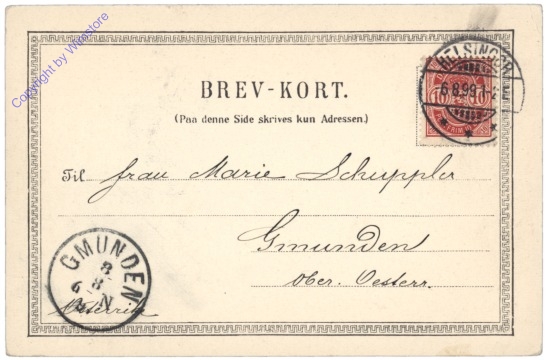 Copyright by Wienstore
BREV-KORT.
(Paa denne Side skrives kun Adressen.)
HELSINGØR
6.8.99.1-2E
10 10
Til frau Marie Schuppler
Gmunden
Ober. Oesterr.
GMUNDEN
8
8
6 N
Österreich